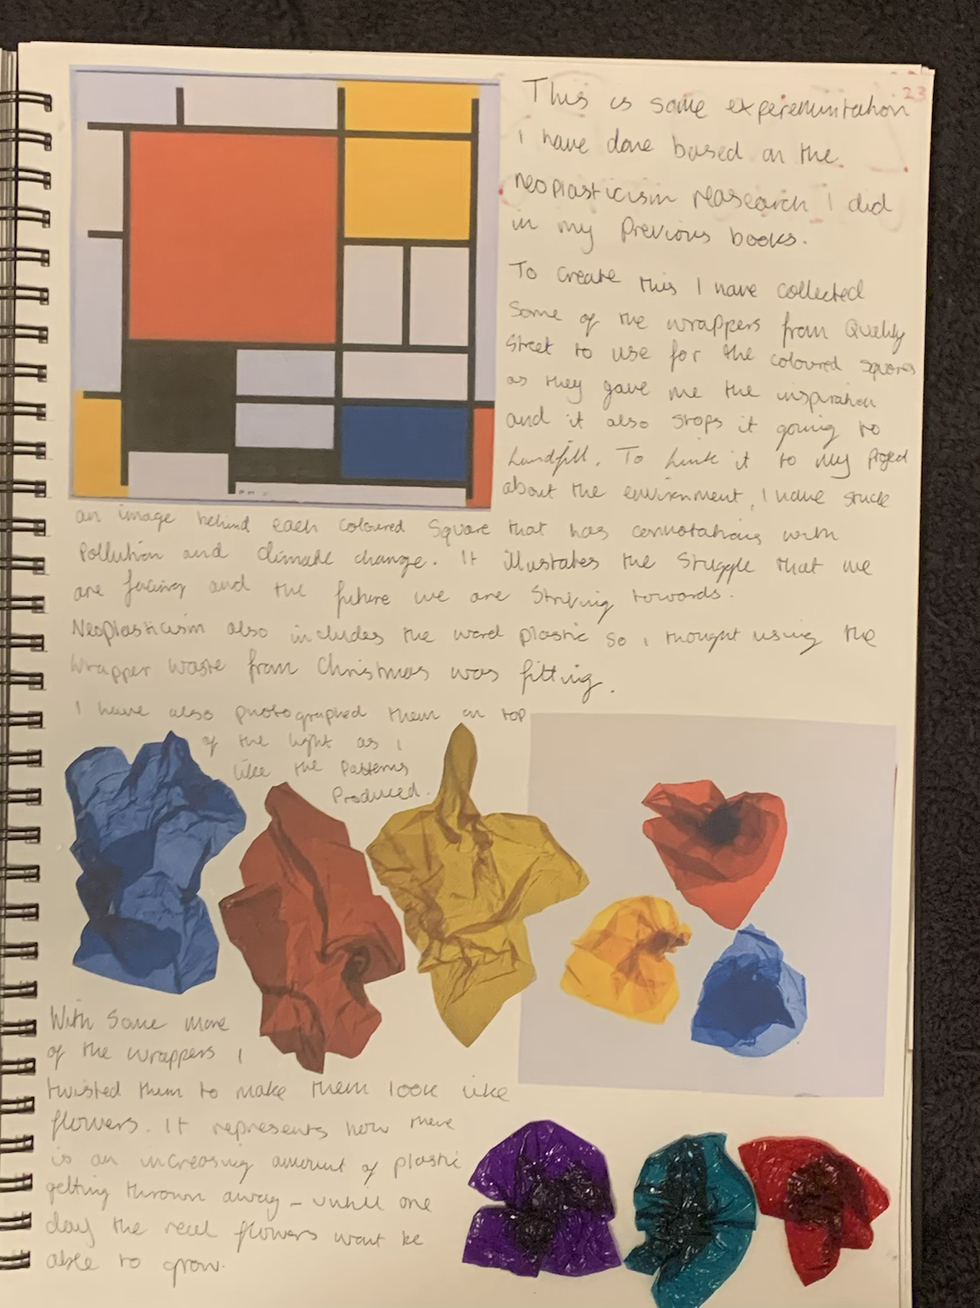 23
This is some experemintation
I have done based on the
neoplasticism reasearch I did
in my Previous books.
To create this I have collected
Some of the wrappers from Quality
Street to use for the coloured squares
as they gave me the inspiration
and it also stops it going to
Landfill. To Link it to my Project
about the envirnment, I have stuck
an image behind each coloured Square that has connotations with
Pollution and climate change. It illustates the Struggle that we
are facing and the future we are Striving towards.
Neoplasticism also includes the word plastic so I thought using the
Wrapper waste from Christmas was fitting.
I have also photographed them on top
of the light as I
like the Patterns
Produced.
With Some more
of the wrappers I
twisted them to make them look like
flowers. It represents how there
is an increasing amount of plastic
getting thrown away - untill one
day the real flowers wont be
able to grow.